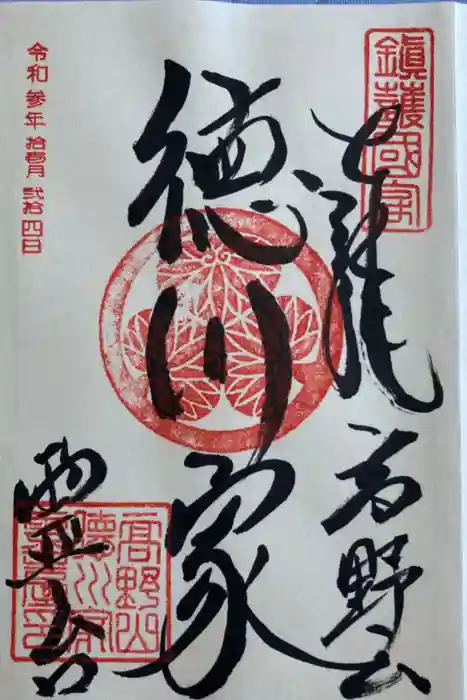 鎮護國家
高野山
徳川家
霊台
令和参年 拾壹月 弐拾四日
高野山
徳川家